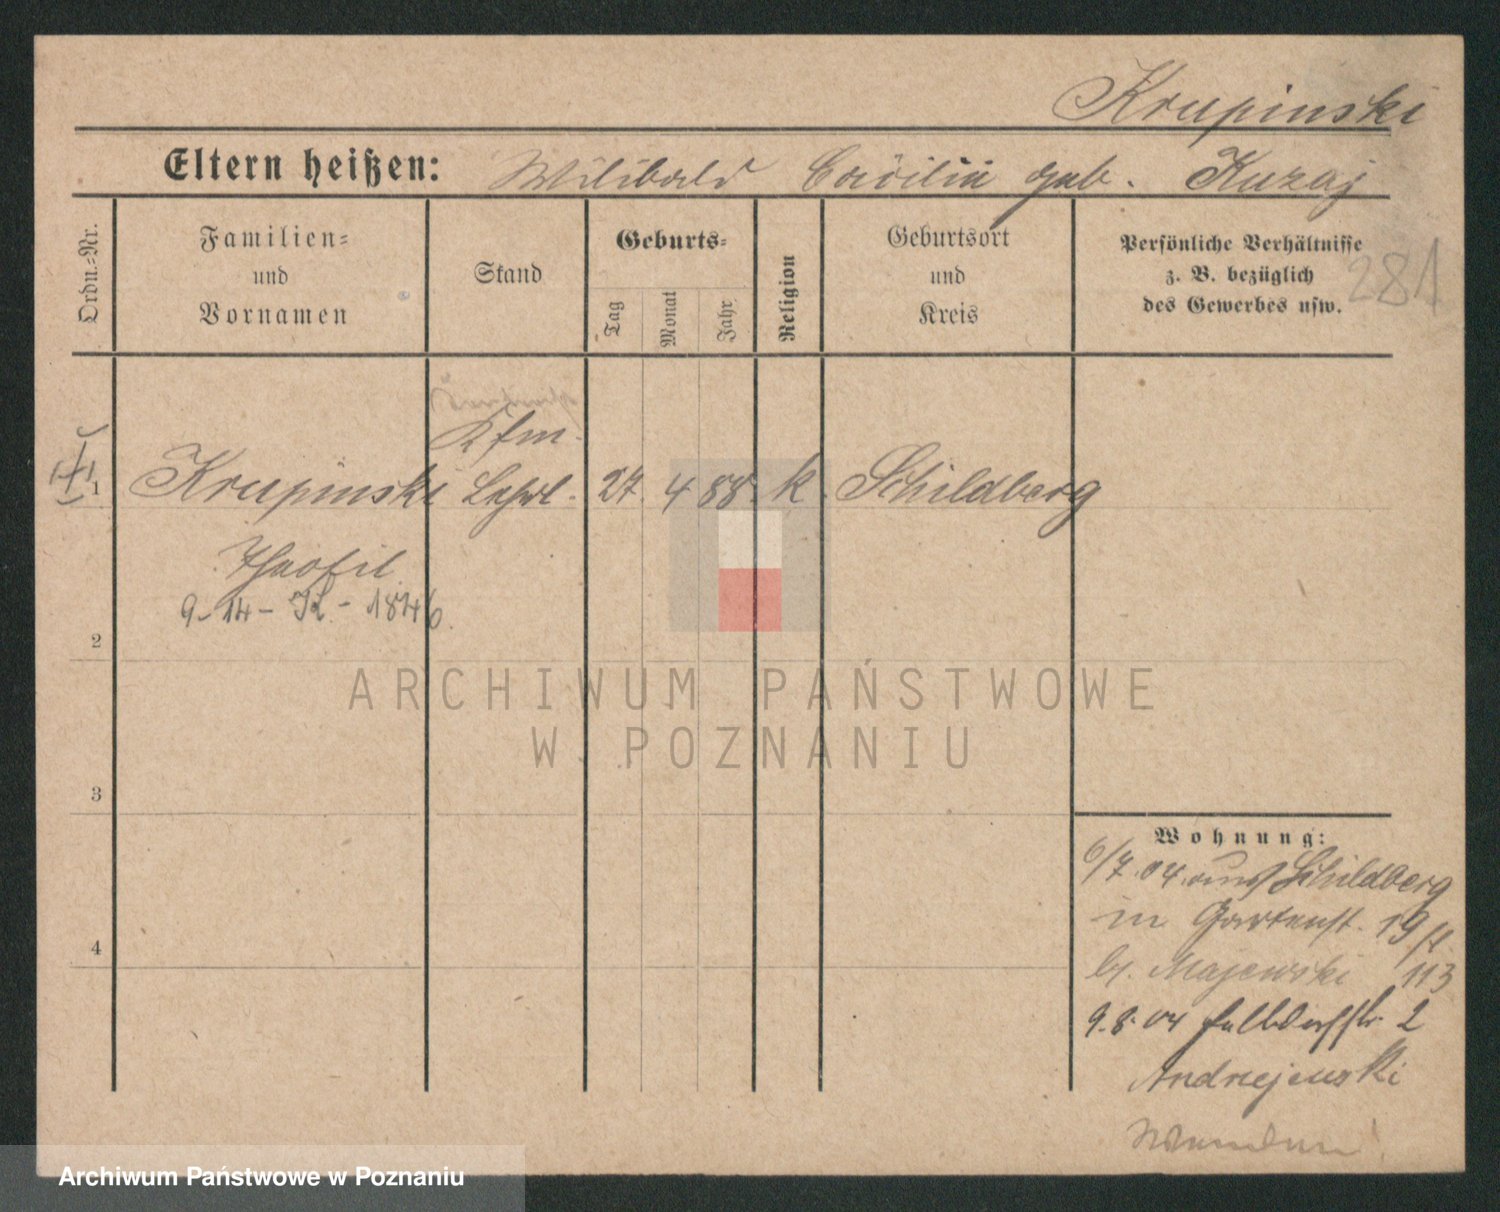 Krupinski
Eltern heißen: Wilibald Cäcilia geb. Kuzaj
Ordn.-Nr.
Familien-
und
Vornamen
Stand
Geburts-
Tag
Monat
Jahr
Religion
Geburtsort
und
Kreis
Persönliche Verhältnisse
z. B. bezüglich
des Gewerbes usw.
281
Kfm.
1 Krupinski Lehrl. 27 4 88 k. Schildberg
Theofil
9-14- - 1846.
2
3
4
Wohnung:
6/7.04. aus Schildberg
in Gartenst. 19
b. Majewski 113
9.8.04 2
Andrzejewski
ARCHIWUM PAŃSTWOWE
W POZNANIU
Archiwum Państwowe w Poznaniu